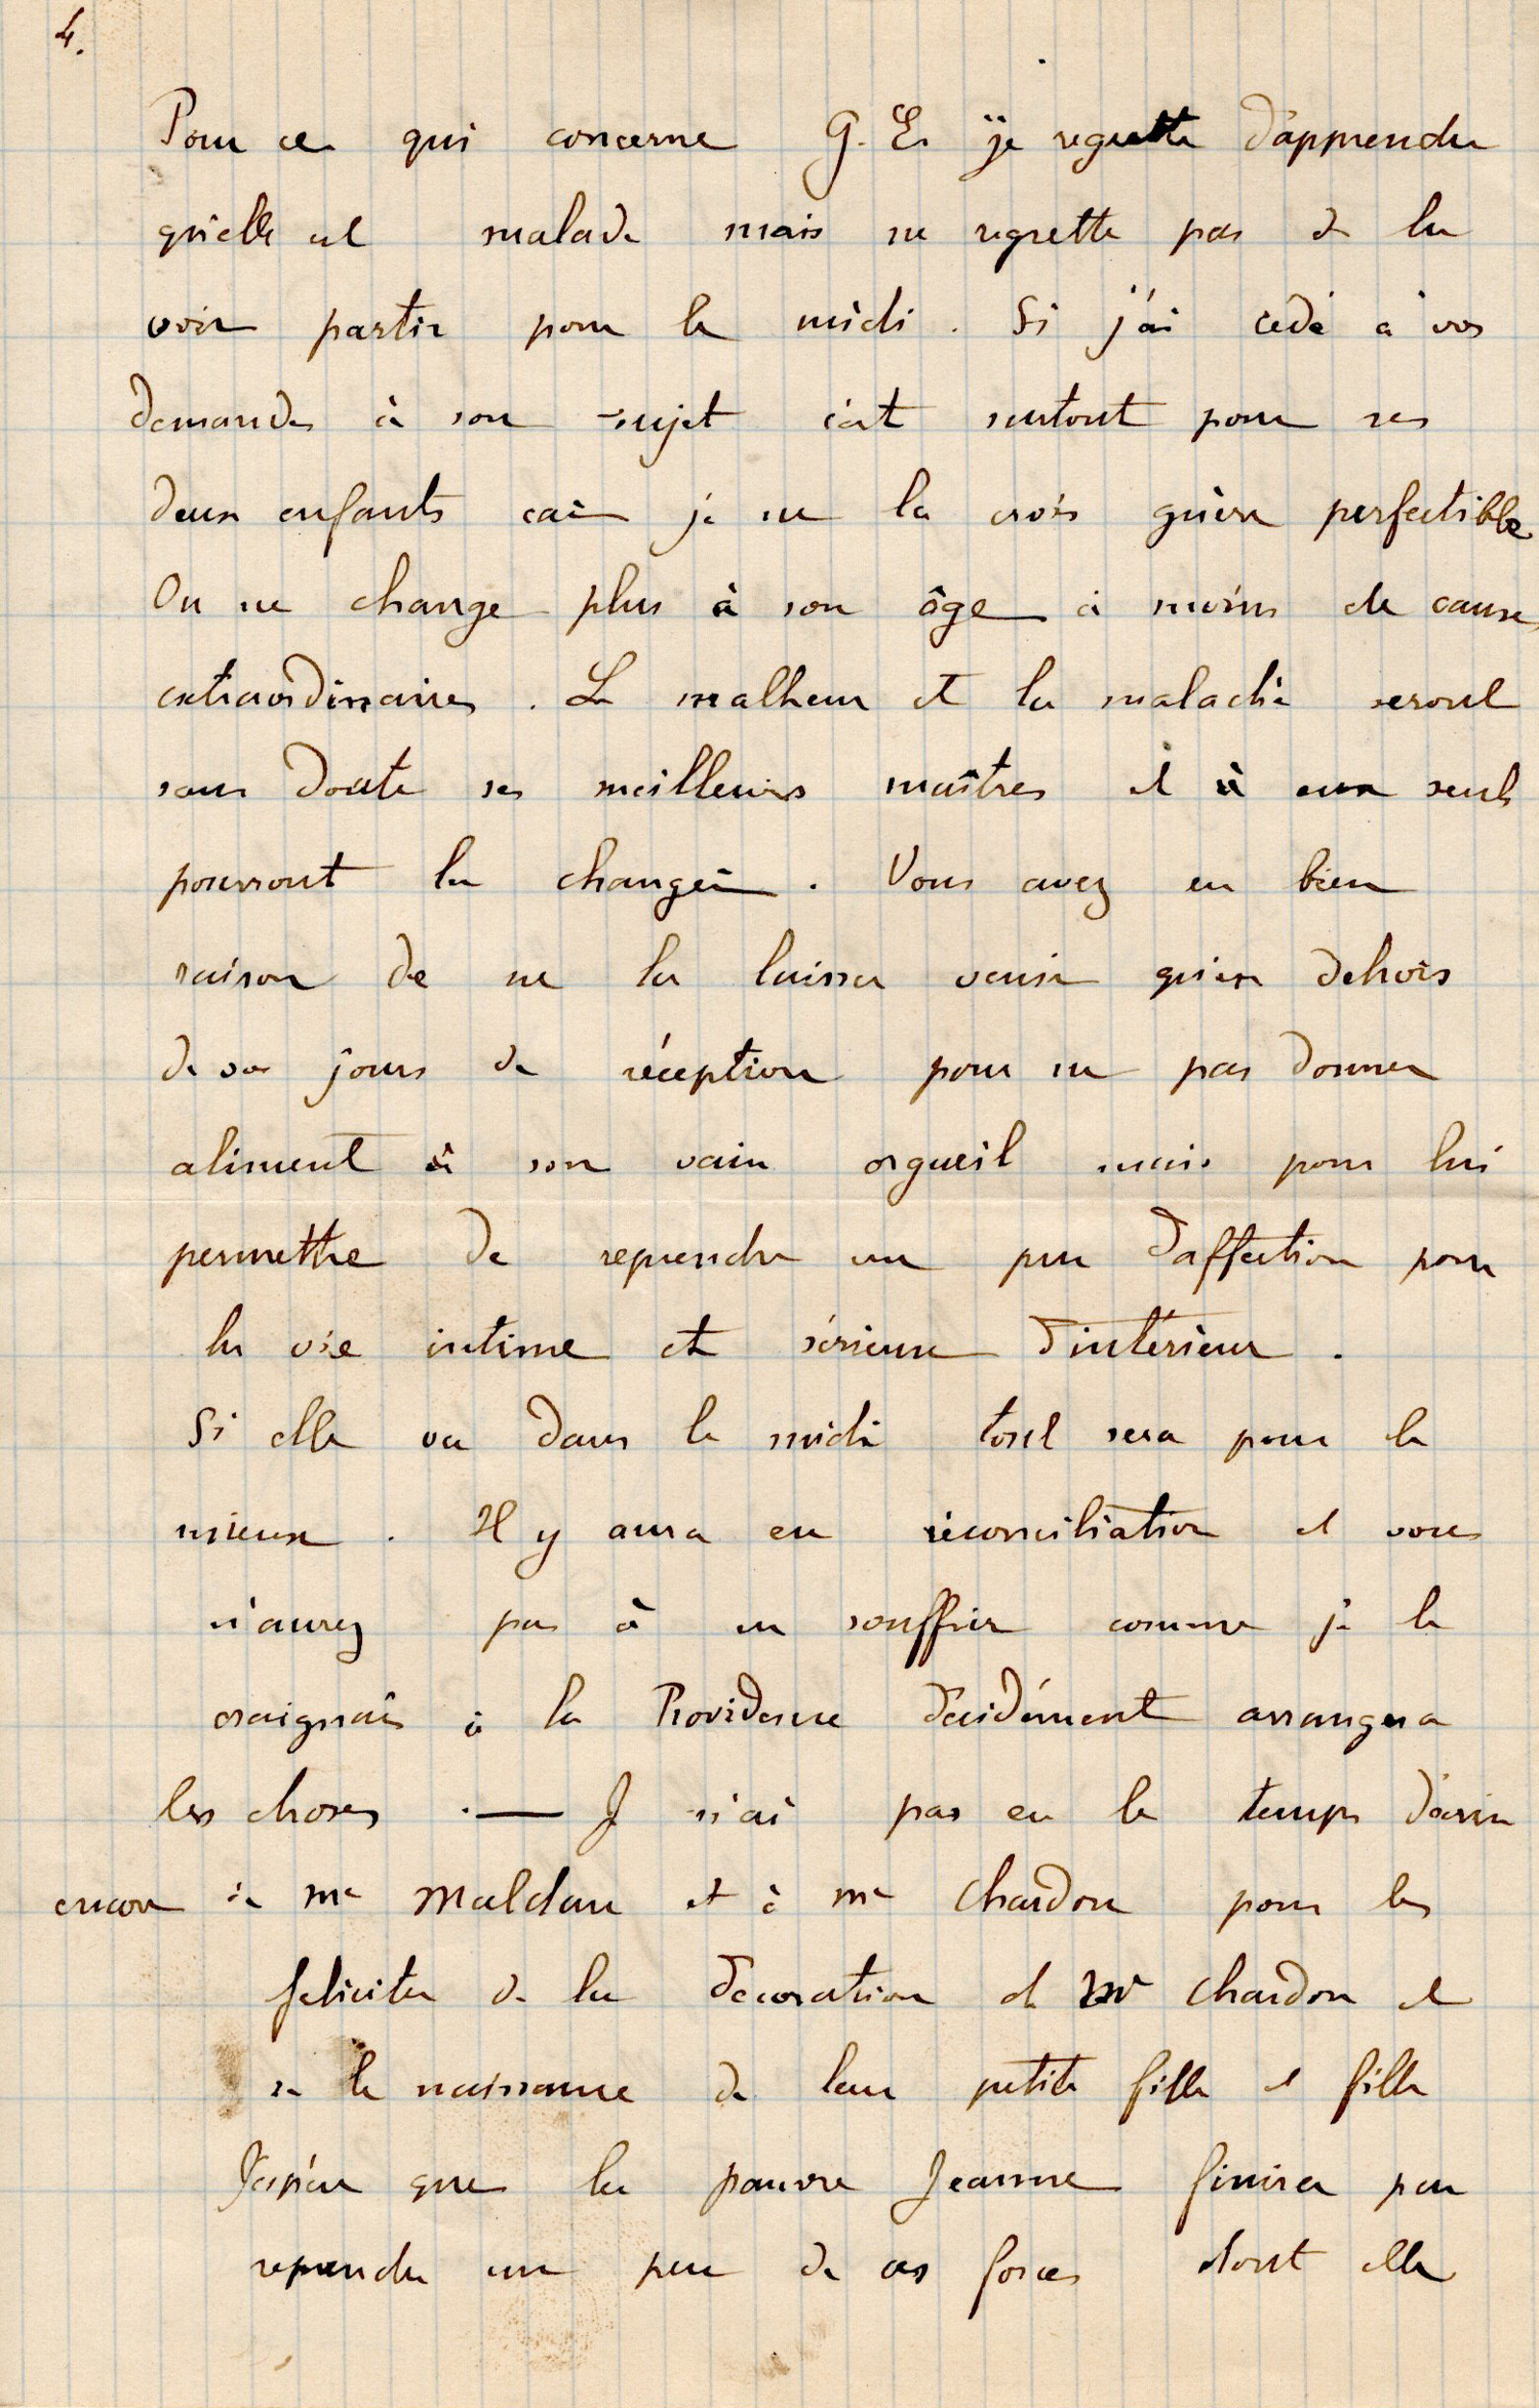 4.
Pour ce qui concerne G. E. je regrette d'apprendre
qu'elle est malade mais ne regrette pas de la
voir partir pour le midi. Si j'ai cédé à vos
demandes à son sujet c'est surtout pour ses
deux enfants car je ne la crois guère perfectible
On ne change plus à son âge à moins de causes
extraordinaires. Le malheur et la maladie seront
sans doute ses meilleurs maîtres et eux seuls
pourront la changer. Vous avez eu bien
raison de ne la laisser venir qu'en dehors
de vos jours de réception pour ne pas donner
aliment à son vain orgueil mais pour lui
permettre de reprendre un peu d'affection pour
la vie intime et sérieuse d'intérieur.
Si elle va dans le midi tout sera pour le
mieux. Il y aura eu réconciliation et vous
n'aurez pas à en souffrir comme je le
craignais la Providence décidément arrangera
les choses. — Je n'ai pas eu le temps d'écrire
encore à Me Maldan et à Me Chardon pour les
feliciter de la decoration de Mr Chardon et
de la naissance de leur petite fille et fille
J'espère que la pauvre Jeanne finira par
reprendre un peu de ces forces dont elle